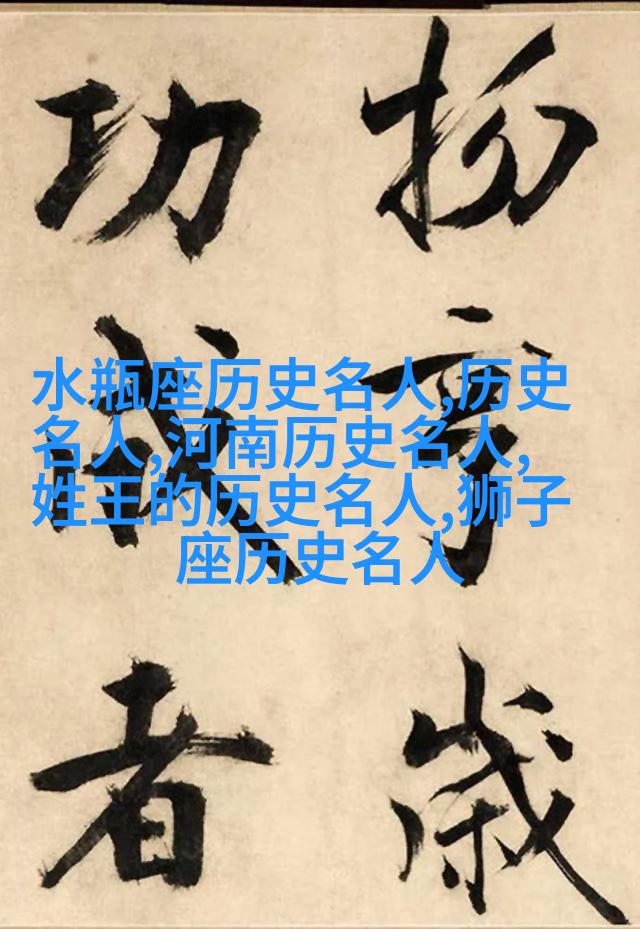 水瓶座历史名人,历史
名人,河南历史名人,
姓王的历史名人,狮子
座历史名人
歲
功
者